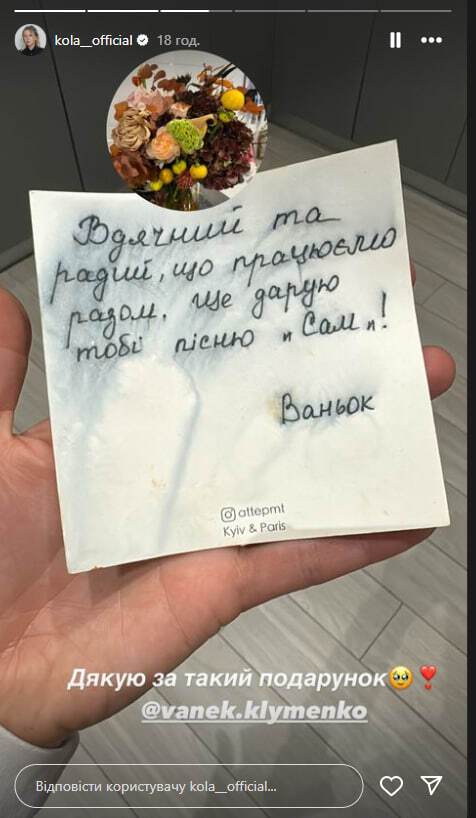 kola__official 18 год.
Вдячний та
радий, що працюємо
разом. Ще дарую
тобі пісню "Сам"!
Ваньок
attepmt
Kyiv & Paris
Дякую за такий подарунок🥹❣️
@vanek.klymenko
Відповісти користувачу kola__official...